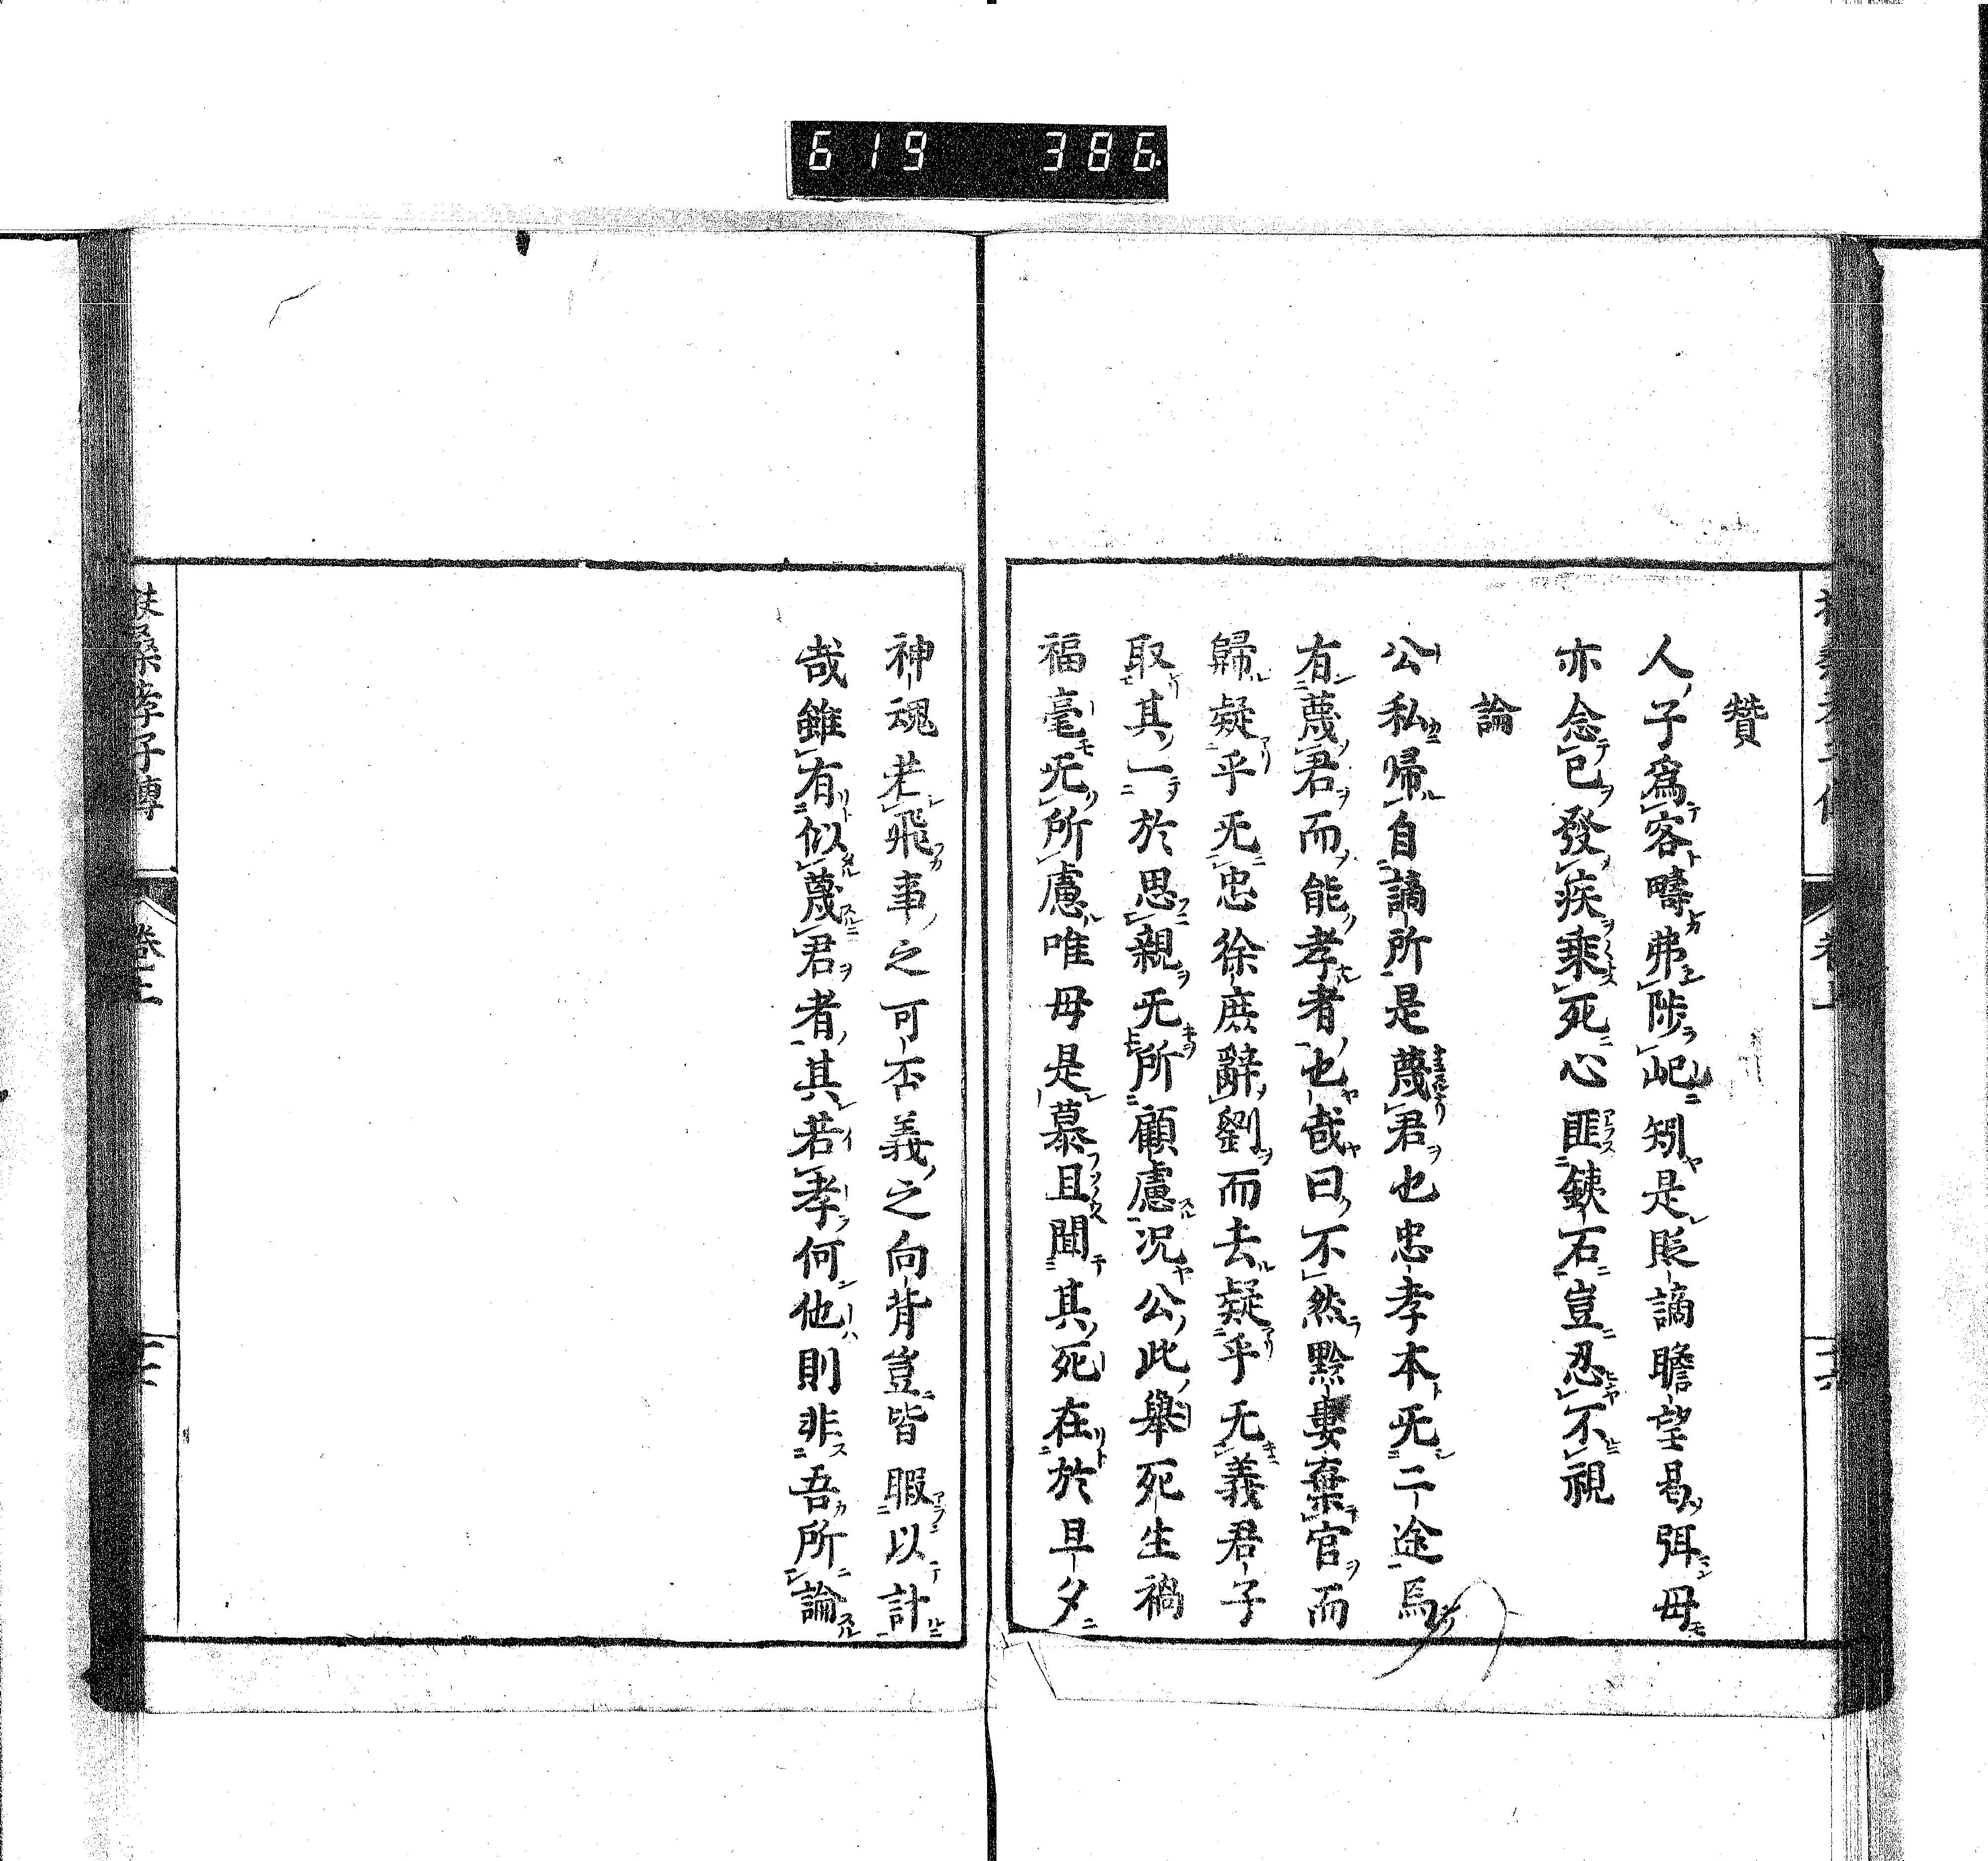 619 386
贊
人子爲客疇弗陟屺矧是貶謫瞻望曷弭母
亦念已發疾乘死心匪鐵石豈忍不視
論
公私帰自謫所是蔑君也忠孝本无二途焉
有蔑君而能孝者也哉曰不然黔婁棄官而
歸疑乎无忠徐庶辭劉而去疑乎无義君子
取其一於思親无所顧慮況公此舉死生禍
福毫无所慮唯母是慕且聞其死在於旦夕
神魂若飛事之可否義之向背豈皆暇以計
哉雖有似蔑君者其若孝何他則非吾所論
扶桑孝子傳
卷上